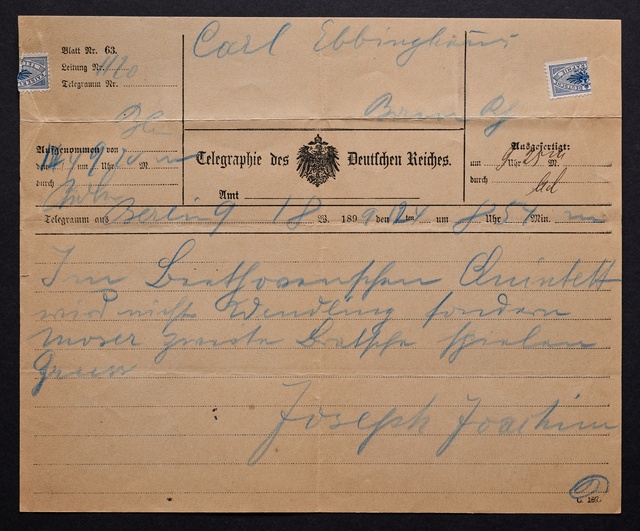 Blatt Nr. 63.
Leitung Nr. 1120
Telegramm Nr.
Carl Ebbinghaus
Bonn
Aufgenommen von
um Uhr M.
durch
Telegraphie des Deutschen Reiches.
Amt
Ausgefertigt:
um 9 Uhr 25 M.
durch
Telegramm aus Berlin 9 18 W. 189 den 12 ten um 8 Uhr 54 Min. m
Im Beethovenschen Quintett
wird nicht Wendling sondern
Moser zweite Bratsche spielen
Gruss
Joseph Joachim
C. 182.